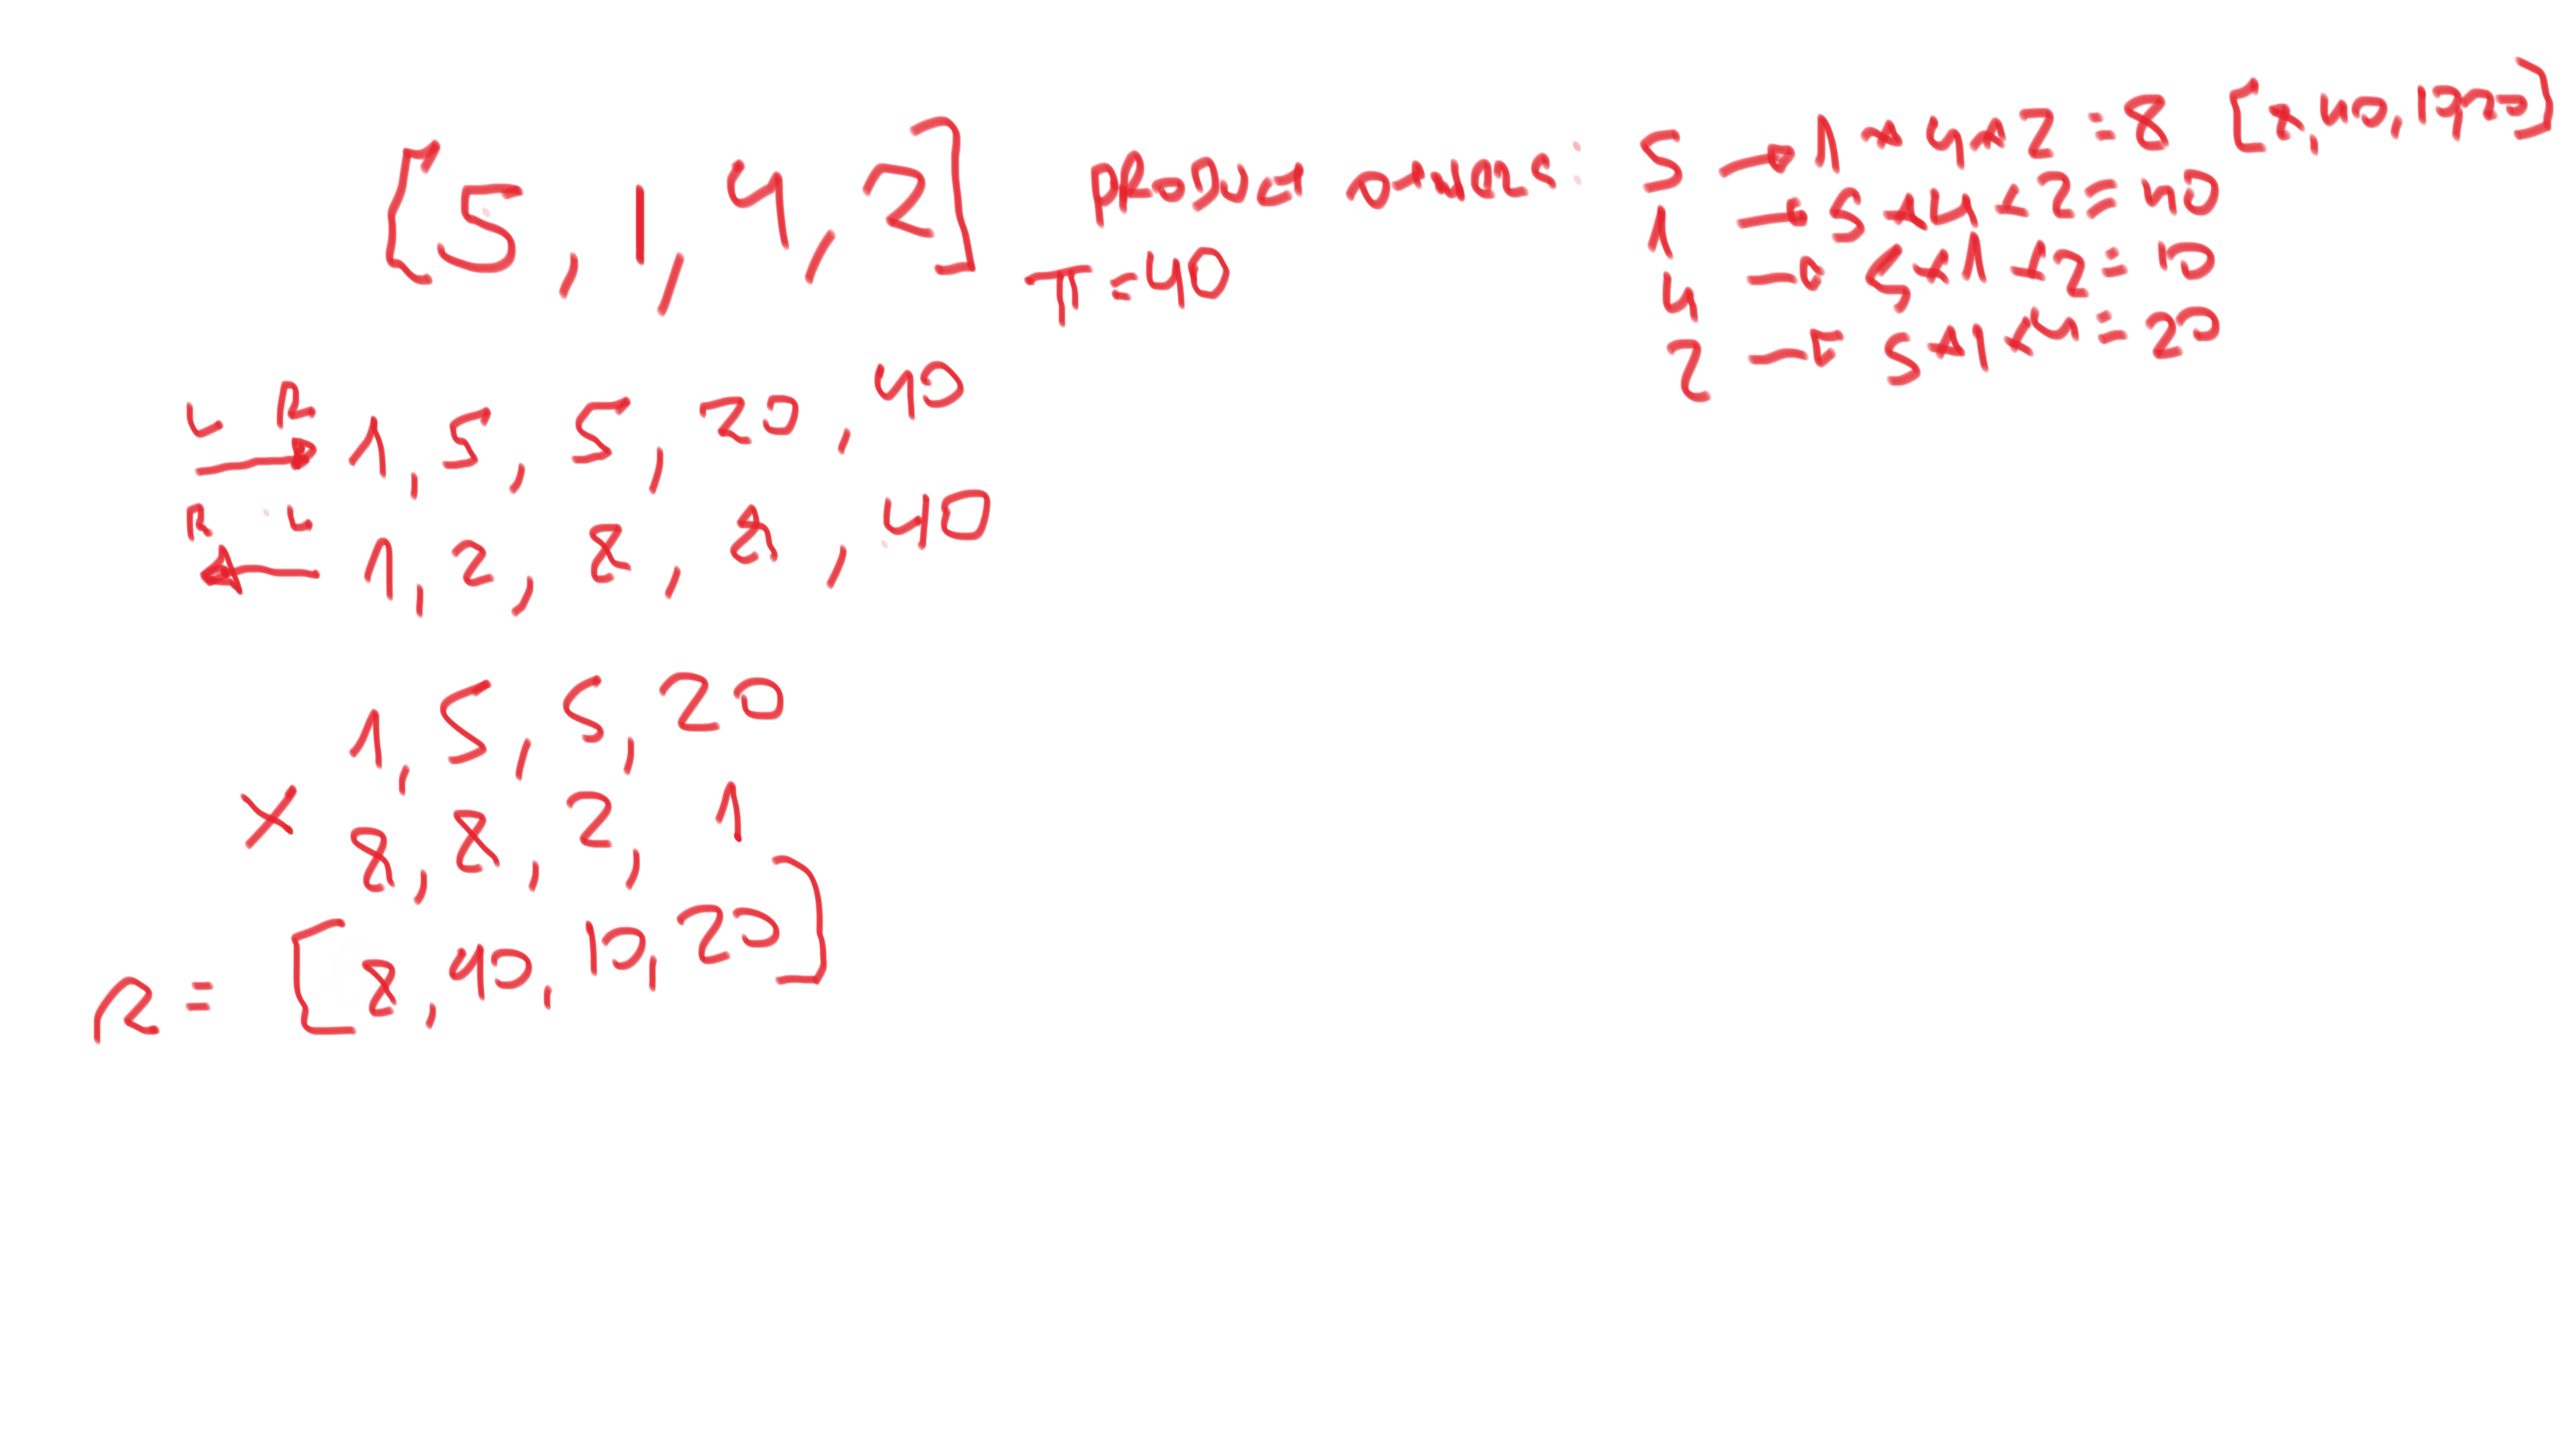 [5, 1, 4, 2]
PRODUCT OTHERS:
T=40
5 → 1 × 4 × 2 = 8 [8, 40, 10, 20]
1 → 5 × 4 × 2 = 40
4 → 5 × 1 × 2 = 10
2 → 5 × 1 × 4 = 20
L R
→ 1, 5, 5, 20, 40
R L
← 1, 2, 8, 8, 40
1, 5, 5, 20
× 8, 8, 2, 1
R = [8, 40, 10, 20]